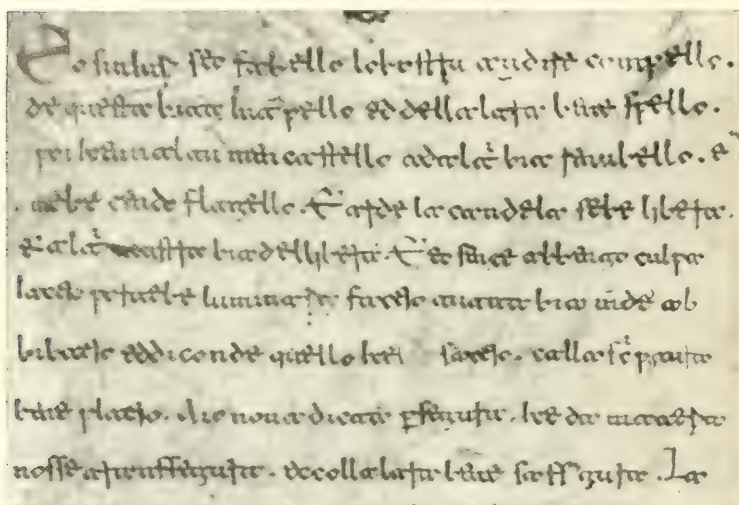 Eo siniuri seo fabello lobostru audire compello.
de questa bita interpello ed dellaltra bene spello.
poi kenaltu mencastello adaltri bia renubello. e
mebe cende flagello. Et arde la candela sebe libera.
et altri mustra bia dellibera. Et eo sence abbengo culpa
iactio por vebe luminaria factio tuttabia mende ab
bibatio eddiconde quello ke sactio. calla scriptura
bene platio. Aio nova dicta per fegura. ke da materia
nosse transfegura. ecollaltra bene saffegura. La